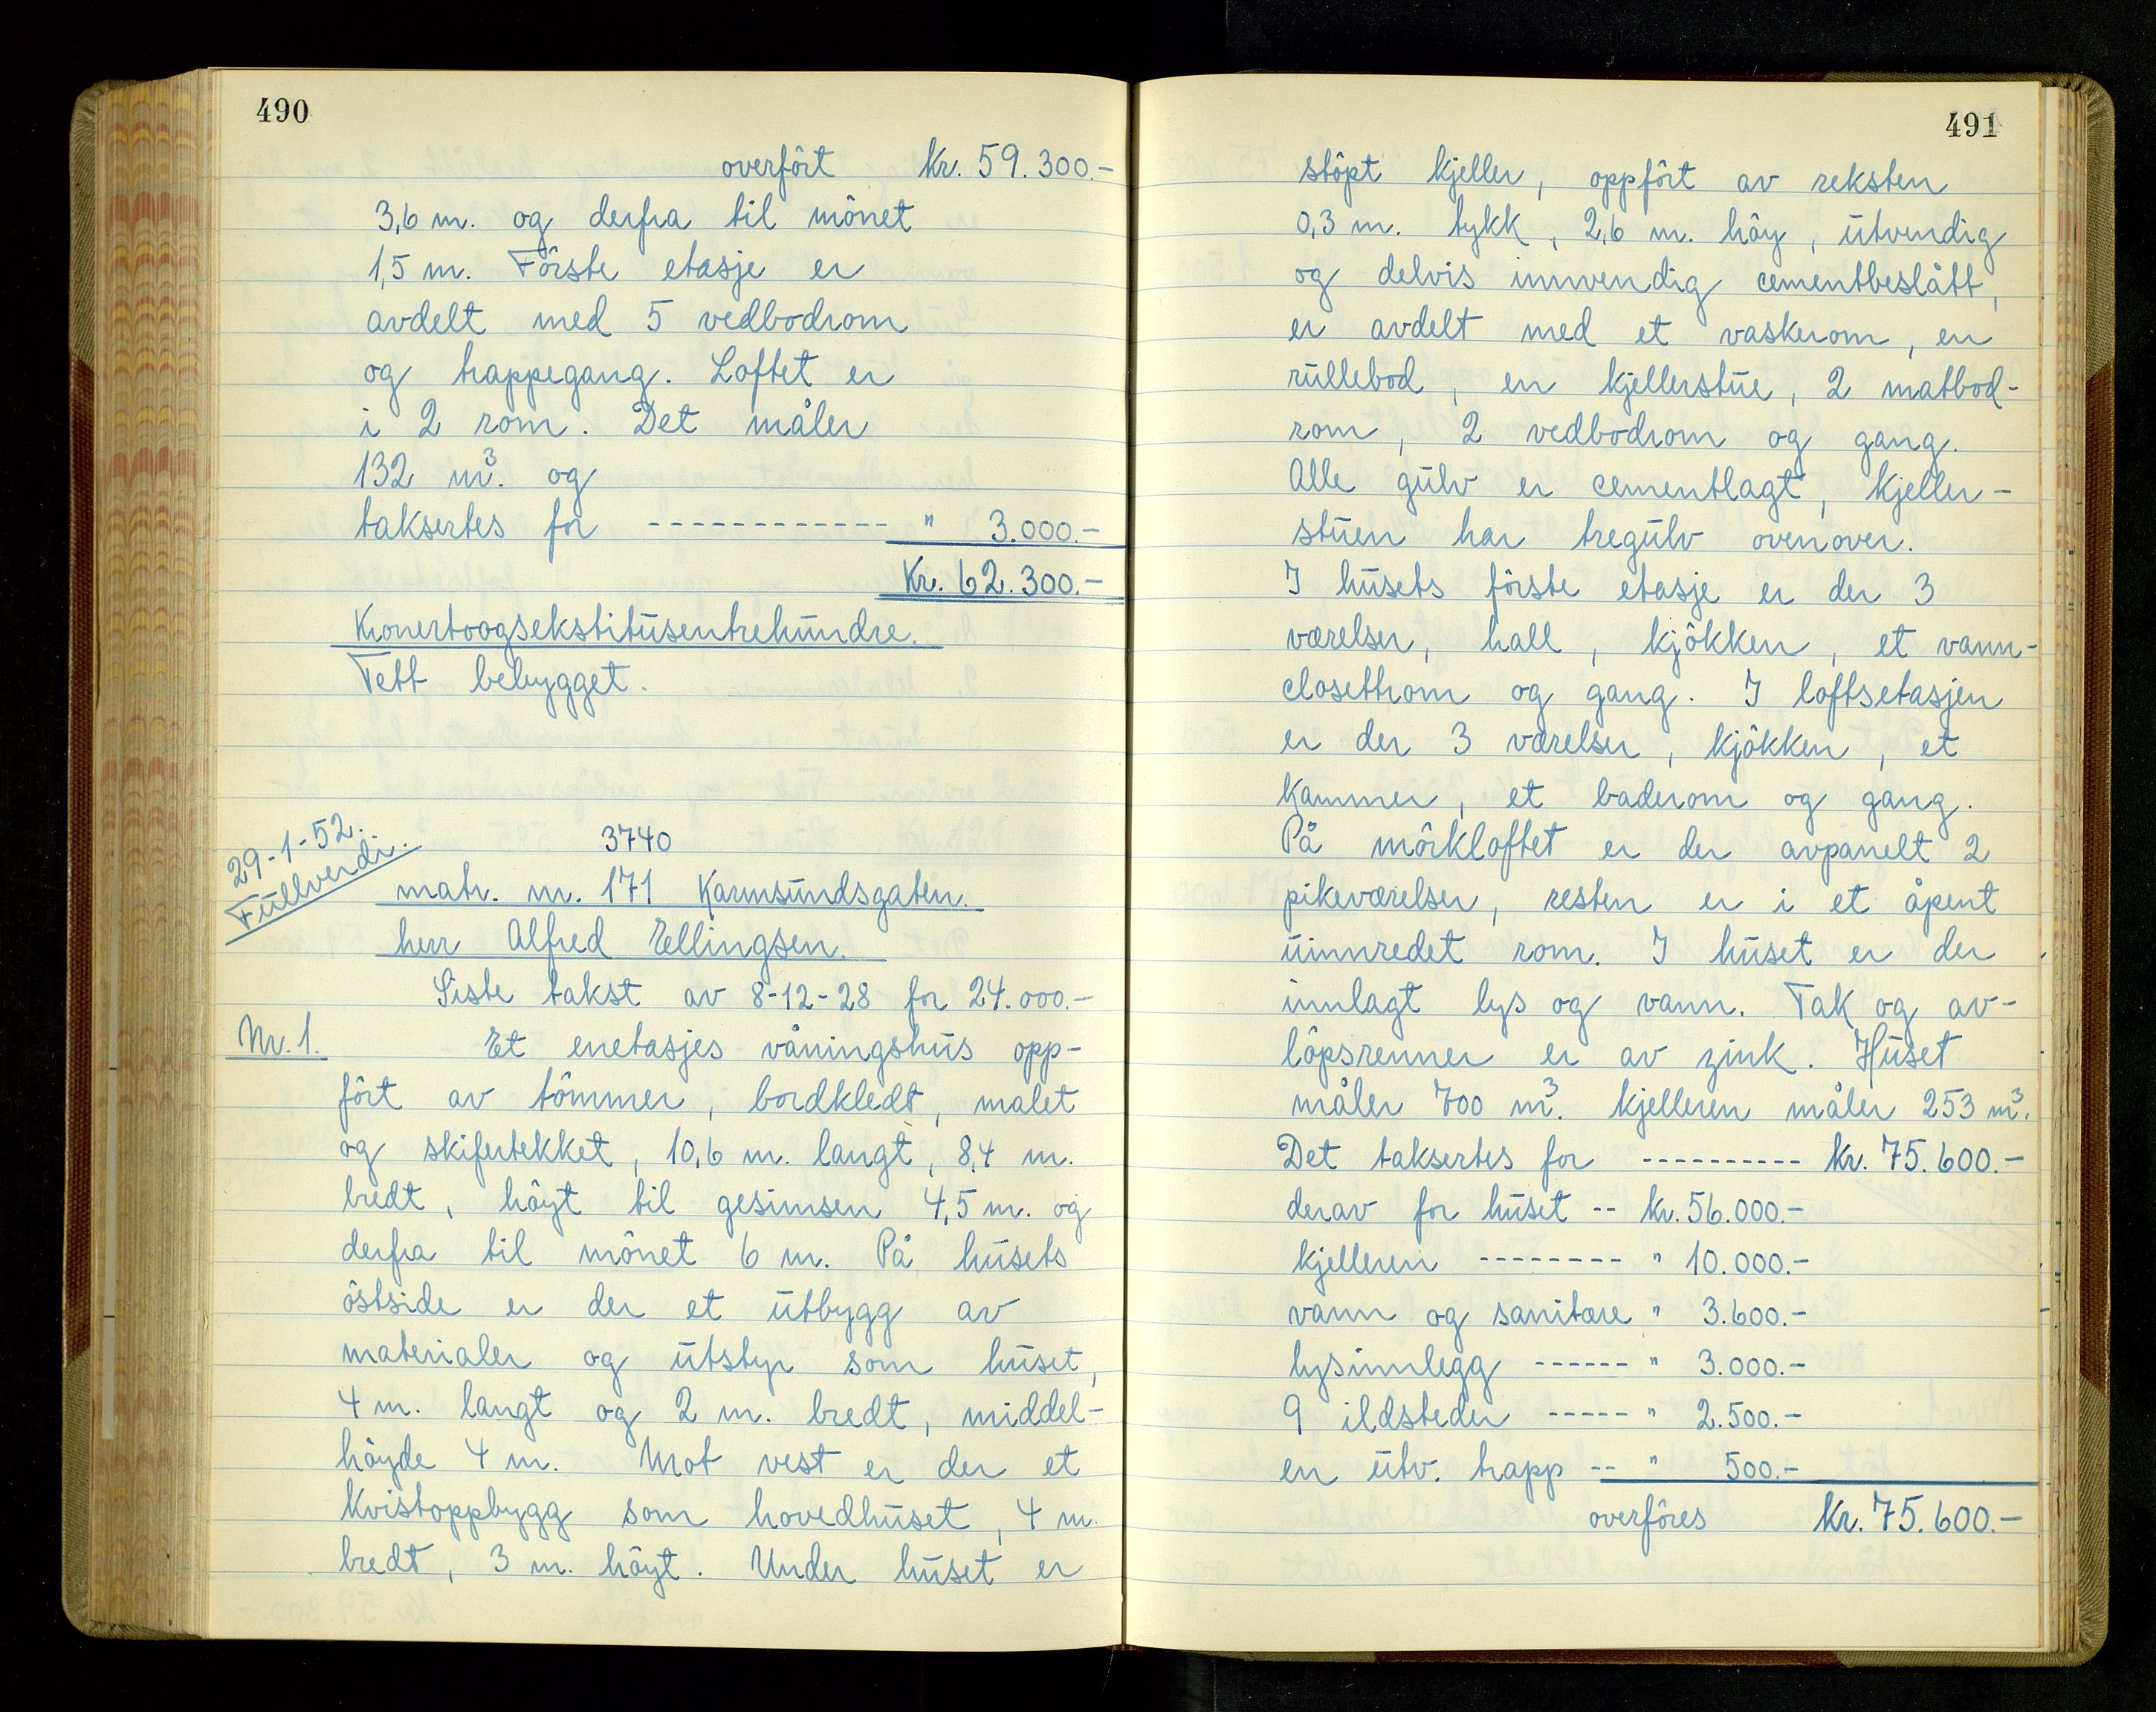 490
overfôrt kr. 59.300.-
3,6 m. og derfra til mônet
1,5 m. Fôrste etasje er
avdelt med 5 vedbodrom
og trappegang. Loftet er
i 2 rom. Det måler
132 m³. og
taksertes for ------------ " 3.000.-
Kr. 62.300.-
Kronertoogsekstitusentrehundre.
Tett bebygget.
29-1-52.
Fullverdi.
3740
matr. nr. 171 Karmsundsgaten.
herr Alfred Ellingsen.
Siste takst av 8-12-28 for 24.000.-
Nr. 1. Et enetasjes våningshus opp-
fôrt av tômmer, bordkledt, malet
og skifertekket, 10,6 m. langt, 8,4 m.
bredt, hôyt til gesimsen 4,5 m. og
derfra til mônet 6 m. På husets
ôstside er der et utbygg av
materialer og utstyr som huset,
4 m. langt og 2 m. bredt, middel-
hôyde 4 m. Mot vest er der et
kvistoppbygg som hovedhuset, 4 m.
bredt, 3 m. hôyt. Under huset er
491
stôpt kjeller, oppfôrt av reksten
0,3 m. tykk, 2,6 m. hôy, utvendig
og delvis innvendig cementbeslått,
er avdelt med et vaskerom, en
rullebod, en kjellerstue, 2 matbod-
rom, 2 vedbodrom og gang.
Alle gulv er cementlagt, kjeller-
stuen har tregulv ovenover.
I husets fôrste etasje er der 3
værelser, hall, kjôkken, et vann-
closettrom og gang. I loftsetasjen
er der 3 værelser, kjôkken, et
kammer, et baderom og gang.
På môrkloftet er der avpanelt 2
pikeværelser, resten er i et åpent
uinnredet rom. I huset er der
innlagt lys og vann. Tak og av-
lôpsrenner er av zink. Huset
måler 700 m³. kjelleren måler 253 m³.
Det taksertes for ---------- kr. 75.600.-
derav for huset -- kr. 56.000.-
kjelleren -------- " 10.000.-
vann og sanitære " 3.600.-
lysinnlegg ------ " 3.000.-
9 ildsteder ----- " 2.500.-
en utv. trapp -- " 500.-
overfôres kr. 75.600.-